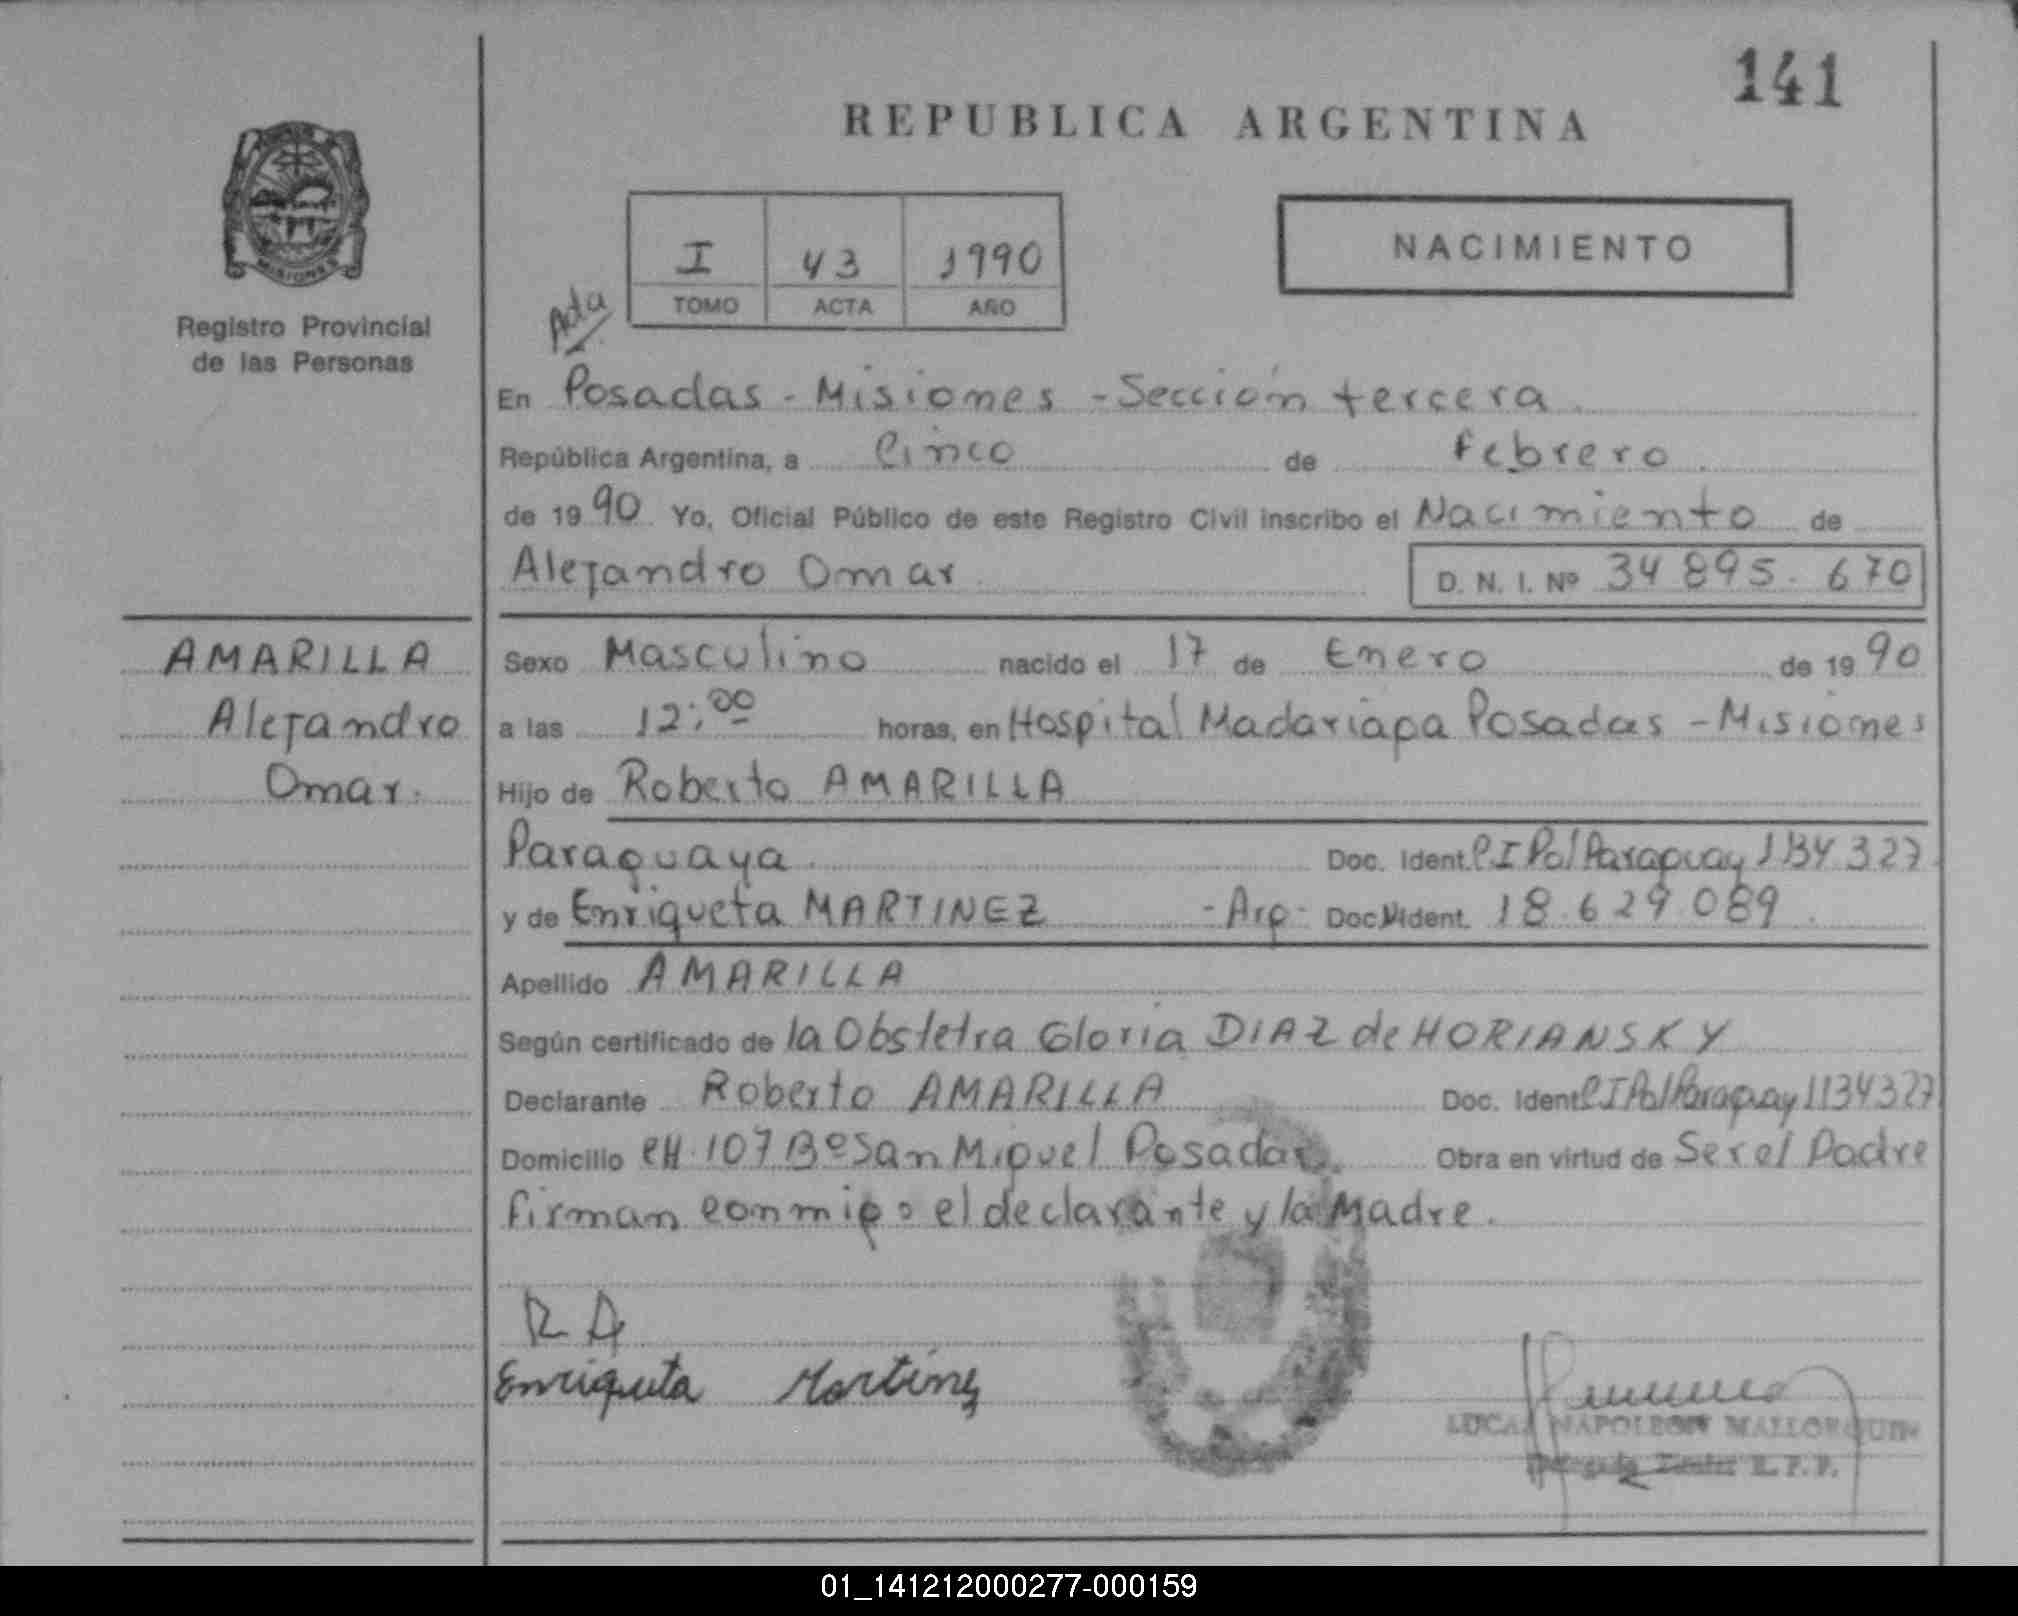 141
REPUBLICA ARGENTINA
MISIONES
Registro Provincial
de las Personas
I 43 1990
TOMO ACTA AÑO
NACIMIENTO
Acta
En Posadas - Misiones - Sección tercera
República Argentina, a Cinco de Febrero
de 1990 Yo, Oficial Público de este Registro Civil inscribo el Nacimiento de
Alejandro Omar D. N. I. Nº 34 895. 670
AMARILLA
Alejandro
Omar.
Sexo Masculino nacido el 17 de Enero de 1990
a las 12:00 horas, en Hospital Madariaga Posadas - Misiones
Hijo de Roberto AMARILLA
Paraguaya Doc. Ident. CI Pol Paraguay 1134327
y de Enriqueta MARTINEZ - Arg - Doc. Ident. 18.629.089
Apellido AMARILLA
Según certificado de la Obstetra Gloria DIAZ de HORIANSKY
Declarante Roberto AMARILLA Doc. Ident CI Pol Paraguay 1134327
Domicilio CH. 107 Bº San Miguel Posadas. Obra en virtud de Ser el Padre
firman conmigo el declarante y la Madre.
R A
Enriqueta Martinez
LUCAS NAPOLEON MALLORQUIN
R. P. P.
01_141212000277-000159